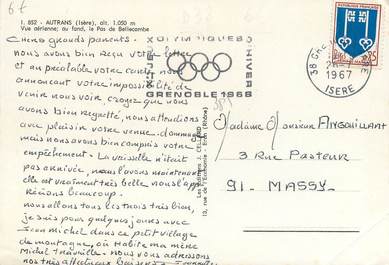 6f
1. 852 - AUTRANS (Isère), alt. 1.050 m
Vue aérienne; au fond, le Pas de Bellecombe
Chers grands parents.
nous avons bien reçu votre lettre
et au préalable votre carte nous
annonçant votre impossibilité de
venir nous voir croyez que nous
avons bien regretté, nous attendions
avec plaisir votre venue. dommage
mais nous avons bien compris votre
empêchement. La vaisselle n'était
pas arrivée, nous l'avons maintenant
elle est vraiment très belle nous l'app
récions beaucoup.
nous allons tous les trois très bien,
je suis pour quelques jours avec
Jean Michel dans ce petit village
de montagne, où habite ma mère
Michel travaille. Nous vous adressons
nos très affectueux baisers
Xes JEUX OLYMPIQUES D'HIVER
GRENOBLE 1968
38 GRENOBLE
1967
ISERE
25
Les Editions J. CELLARD
13, rue de l'Economie - Bron (Rhône)
Madame Monsieur
3 Rue Pasteur
91. MASSY